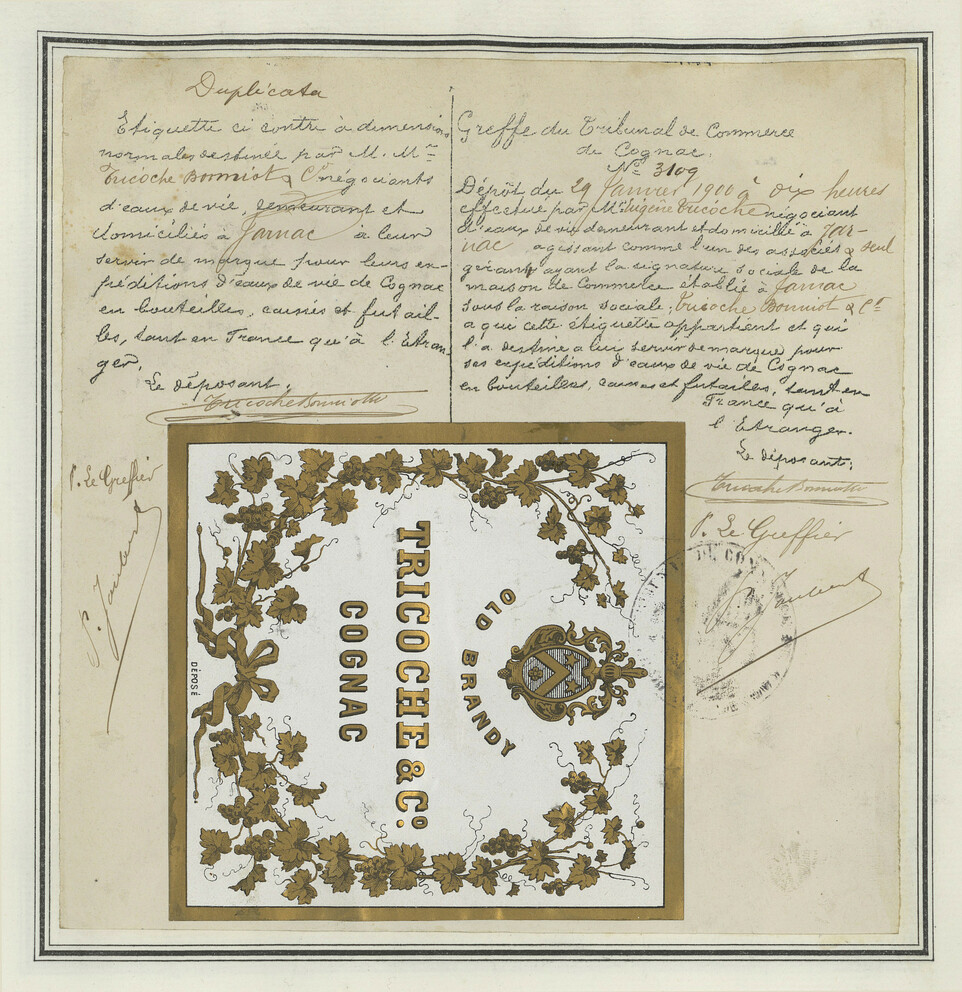 Duplicata
Etiquette ci contre à dimensions
normales destinée par M. M^rs
Tricoche Bonniot & C^ie négociants
d'eaux de vie, demeurant et
domiciliés à Jarnac à leur
servir de marque pour leurs ex-
péditions d'eaux de vie de Cognac
en bouteilles, caisses et futail-
les, tant en France qu'à l'Etran-
ger.
Le déposant,
Tricoche Bonniot & C^ie
P. Le Greffier
Greffe du Tribunal de Commerce
de Cognac.
N° 3109
Dépôt du 29 Janvier 1900 à dix heures
effectué par M^r Eugène Tricoche négociant
d'eaux de vie demeurant et domicilié à Jar-
nac agissant comme l'un des associés & seul
gérant ayant la signature sociale de la
maison de Commerce établie à Jarnac
sous la raison sociale: Tricoche Bonniot & C^ie
a qui cette étiquette appartient et qui
l'a destine a lui servir de marque pour
ses expéditions d'eaux de vie de Cognac
en bouteilles, caisses et futailles, tant en
France qu'à
l'Etranger.
Le déposant:
Tricoche Bonniot & C^ie
P. Le Greffier
OLD BRANDY
TRICOCHE & C^o.
COGNAC
DÉPOSÉ